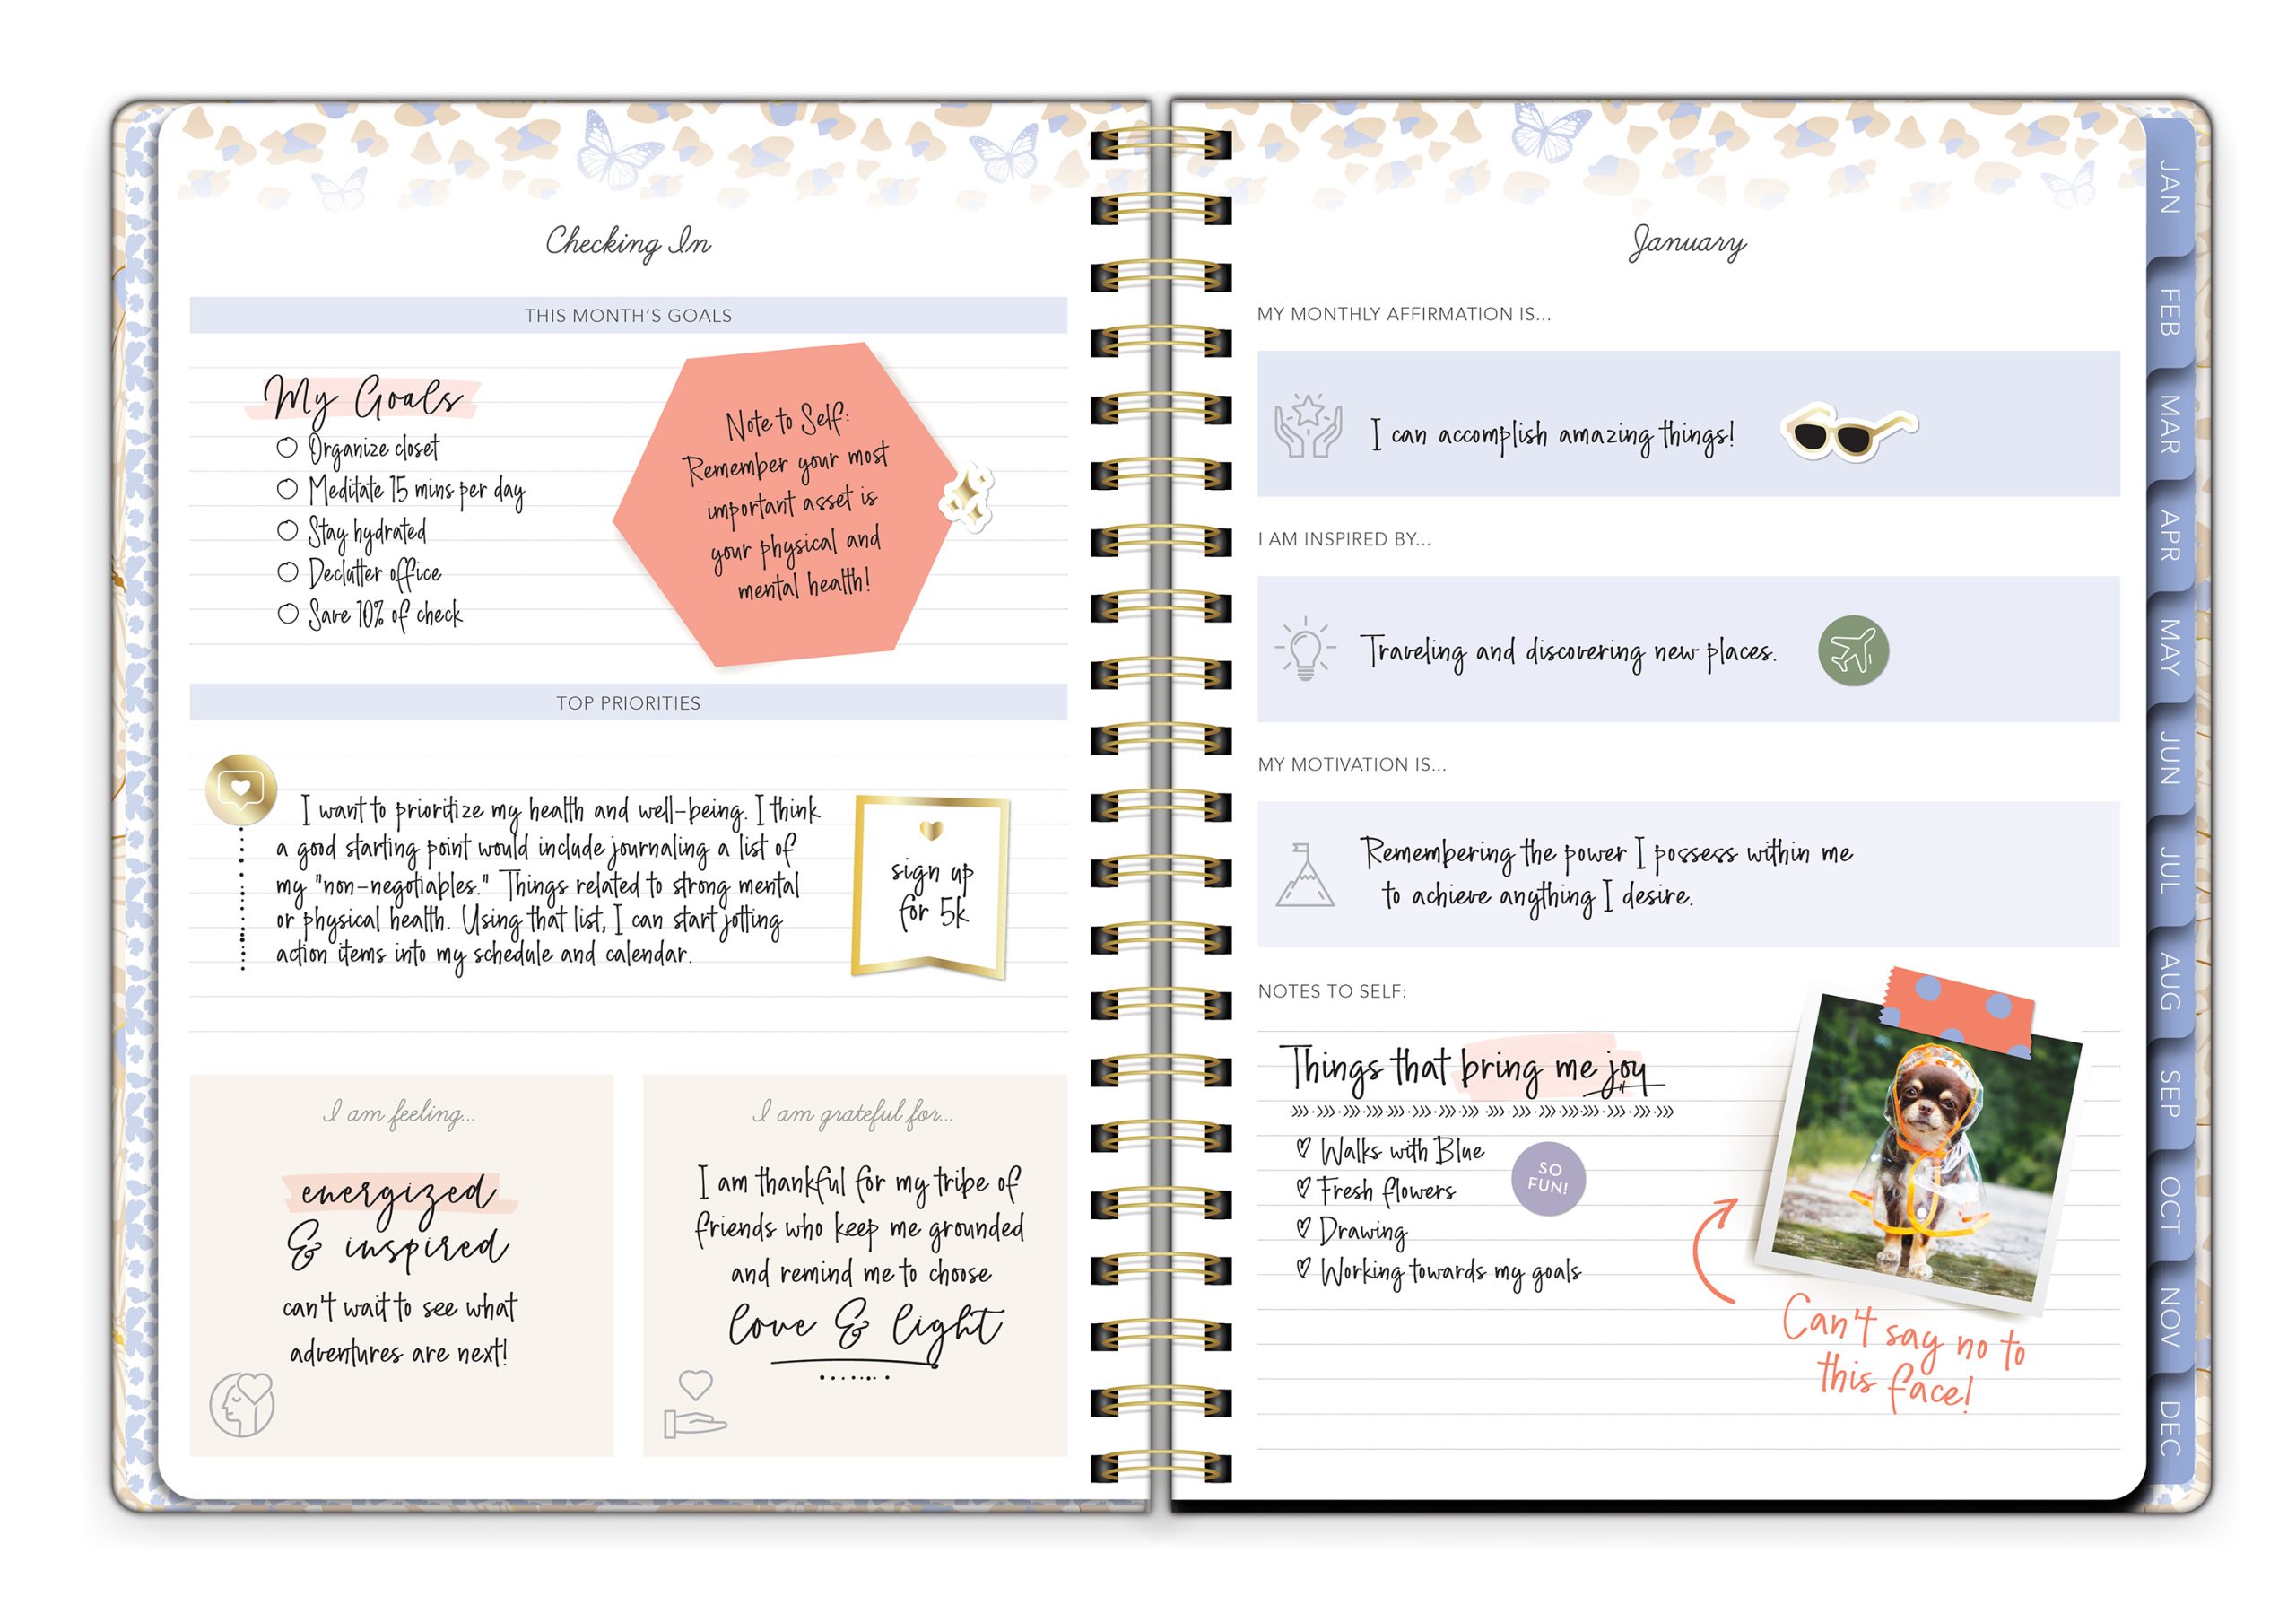 Checking In
THIS MONTH'S GOALS
My Goals
Organize closet
Meditate 15 mins per day
Stay hydrated
Declutter office
Save 10% of check
Note to Self:
Remember your most
important asset is
your physical and
mental health!
TOP PRIORITIES
I want to prioritize my health and well-being. I think
a good starting point would include journaling a list of
my "non-negotiables." Things related to strong mental
or physical health. Using that list, I can start jotting
action items into my schedule and calendar.
sign up
for 5k
I am feeling...
energized
& inspired
can't wait to see what
adventures are next!
I am grateful for...
I am thankful for my tribe of
friends who keep me grounded
and remind me to choose
love & light
January
MY MONTHLY AFFIRMATION IS...
I can accomplish amazing things!
I AM INSPIRED BY...
Traveling and discovering new places.
MY MOTIVATION IS...
Remembering the power I possess within me
to achieve anything I desire.
NOTES TO SELF:
Things that bring me joy
Walks with Blue
Fresh flowers
Drawing
Working towards my goals
SO
FUN!
Can't say no to
this face!
JAN
FEB
MAR
APR
MAY
JUN
JUL
AUG
SEP
OCT
NOV
DEC